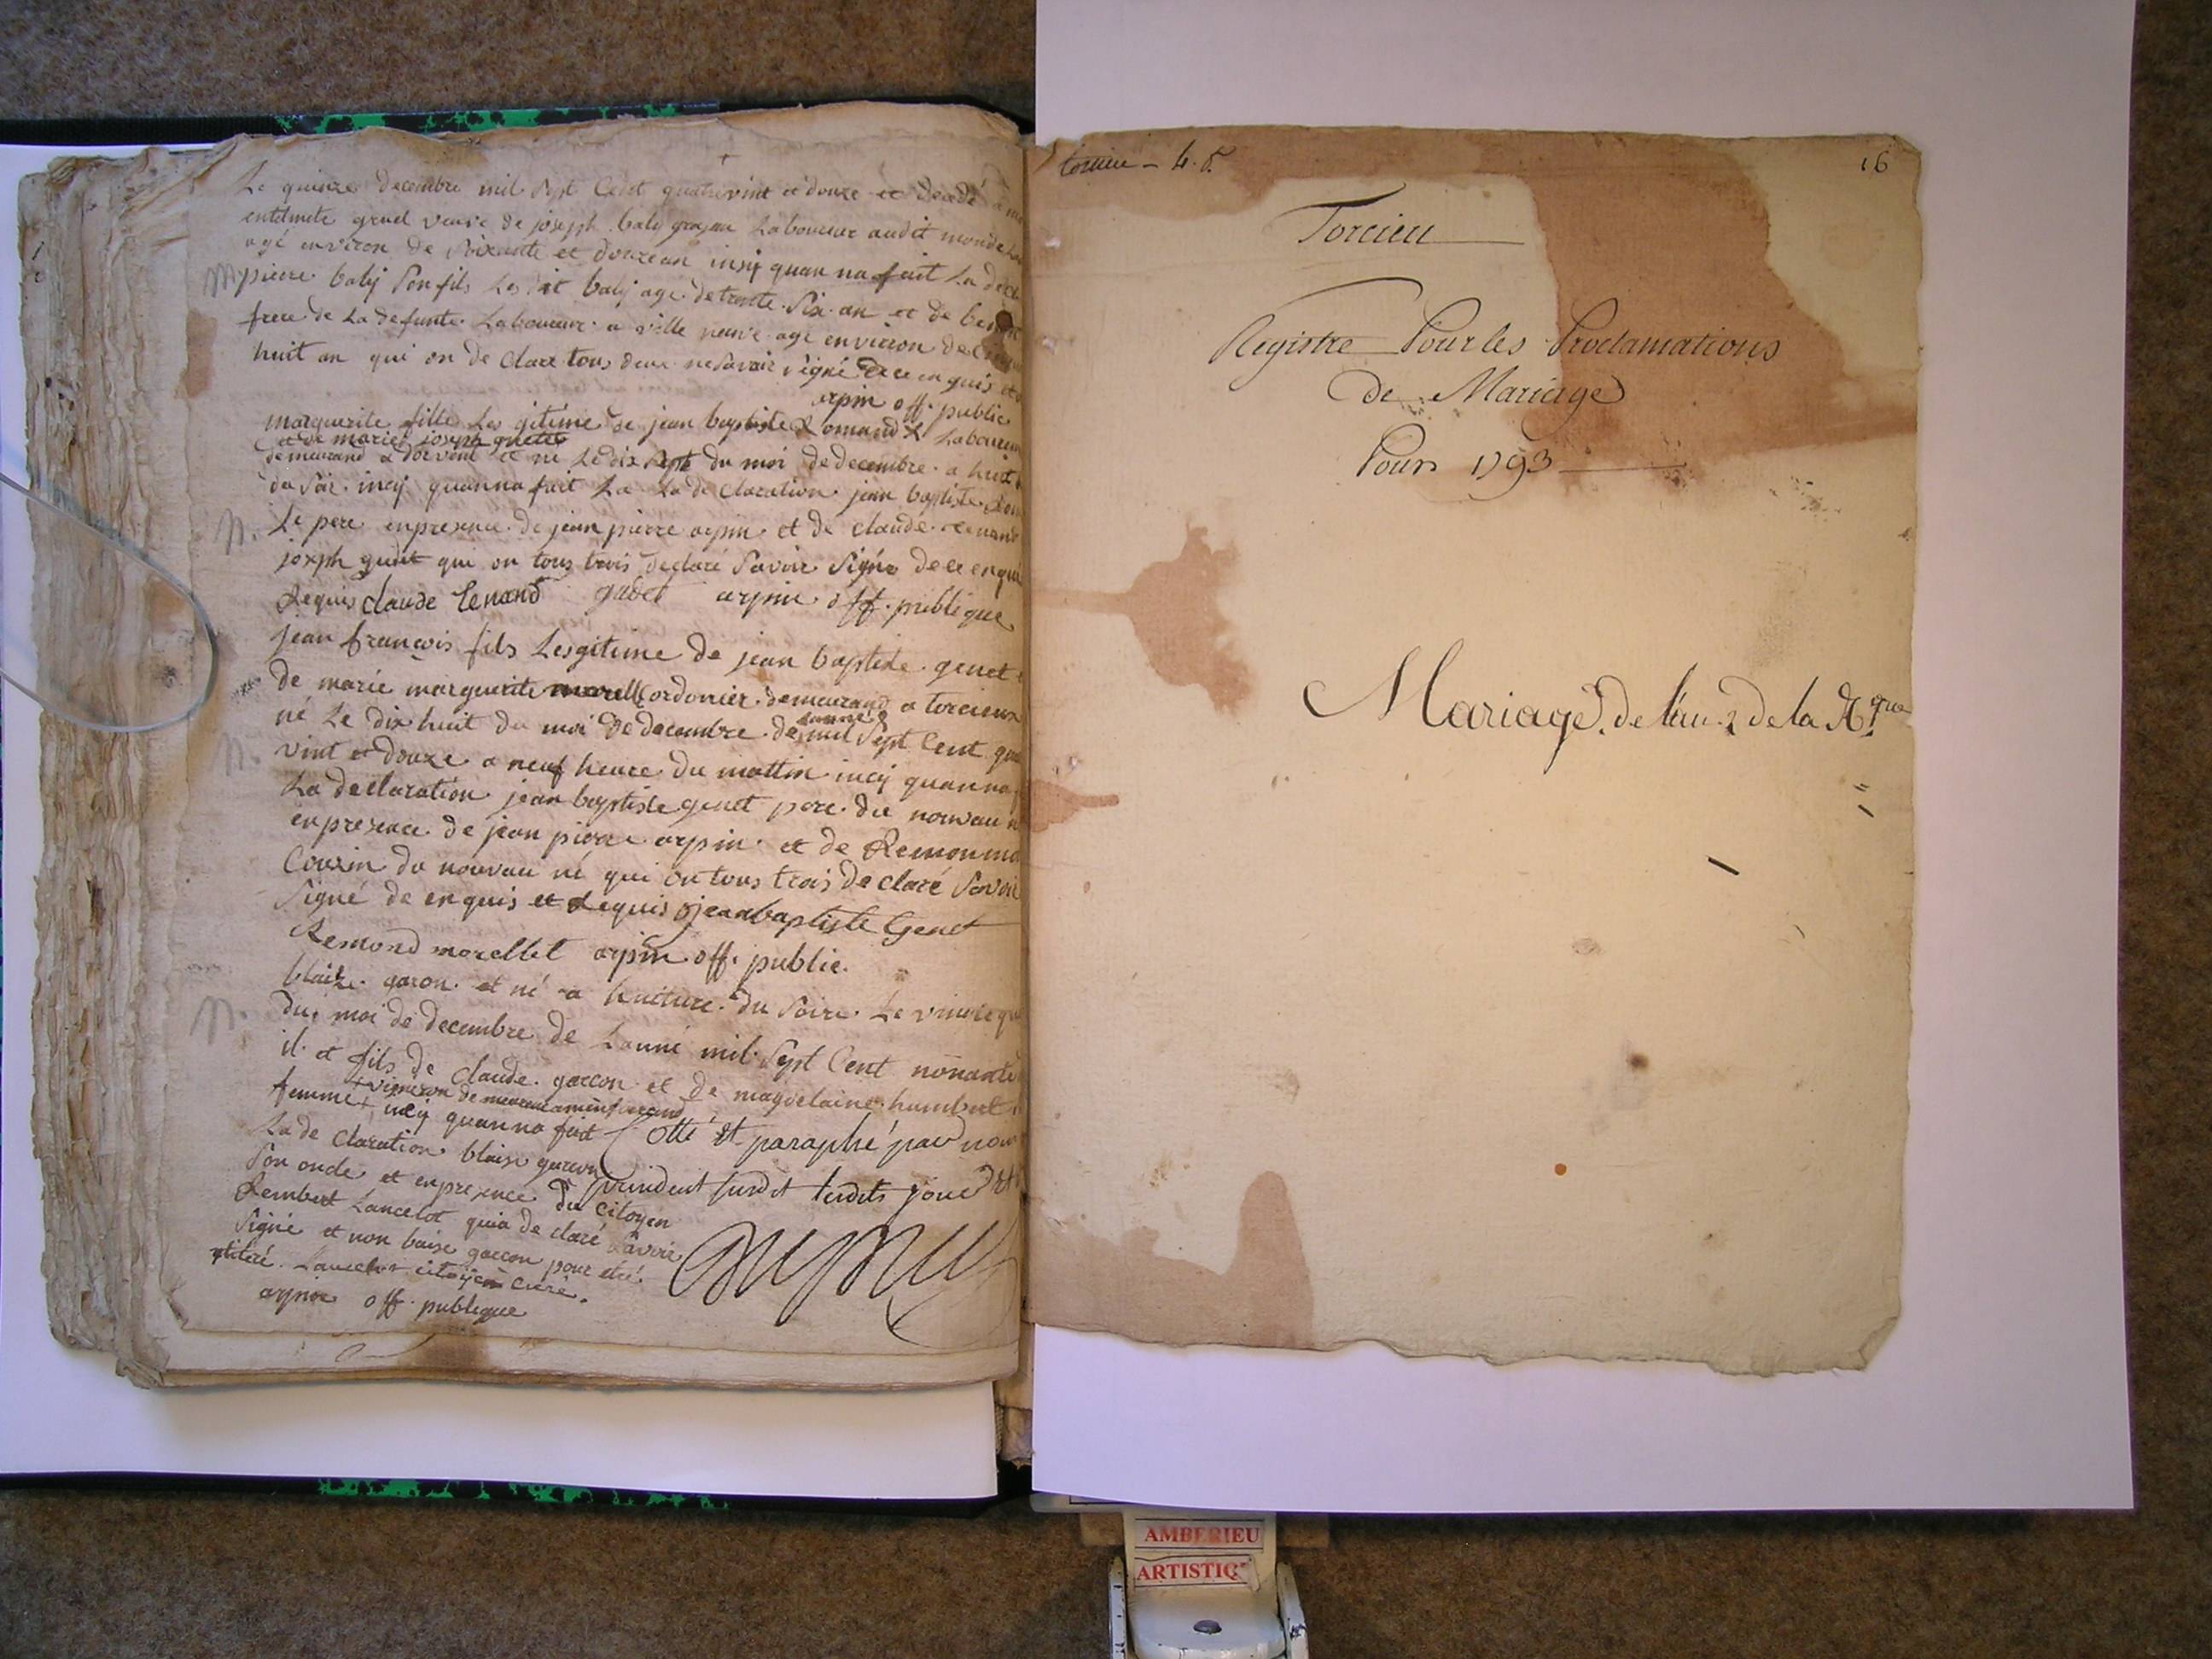 Le quinze decembre mil sept Cent quatrevint et douze et decedé a
entelmete gruel veuve de joseph baly grojan Laboureur audit
agé environ de soixante et douze an insy quan na fait La
pierre baly son fils Les dit baly age de trente six an et de
frere de La defunte Laboureur a ville neuve age environ de
huit an qui on de Clare tous deux ne savoir signé de ce enquis et
arpin off. public
marguerite fille Les gitime de jean baptiste Laboureur
et de marie joseph
demeurand a dorvent et né Le dix sept du moi de decembre a huit
du soir incy quanna fait La La de Claration jean baptiste
Le pere enpresence de jean pierre arpin et de claude renand
joseph gudet qui on tous trois declaré savoir signé de ce enquis
Requis claude Renand gudet arpin off. publique
jean françois fils Lesgitime de jean baptiste genet
de marie marguerite Cordonier demeurand a torcieux
né Le dix huit du moi de decembre de Lanné mil sept Cent
vint et douze a neuf heure du mattin incy quanna
La declaration jean baptiste genet pere du nouveau
enpresence de jean pierre arpin et de Remon
Couzin du nouveau né qui on tous trois de claré savoir
signé de enquis et Requis jean baptiste Genet
Remond morellet arpin off. public.
blaise garon et né a huiture du soire Le
du moi de decembre de Lanné mil sept Cent nonante
il et fils de Claude garcon et de magdelaine humbert
vigneron
femme incy quanna fait Cotté et paraphé par nous
La de Claration blaise garcon
son oncle et enpresence du Citoyen president susdit lesdits jour et
Rembert Lancelot quia de claré savoir
signé et non baise garcon pour etré
Lancelot citoyen Curé.
arpin off. publique
torcieu - 4. d.
16
Torcieu
Registre Pour les Proclamations
de Mariage
Pour 1793
Mariage de l'an 2 de la Rque
AMBERIEU
ARTISTIQ